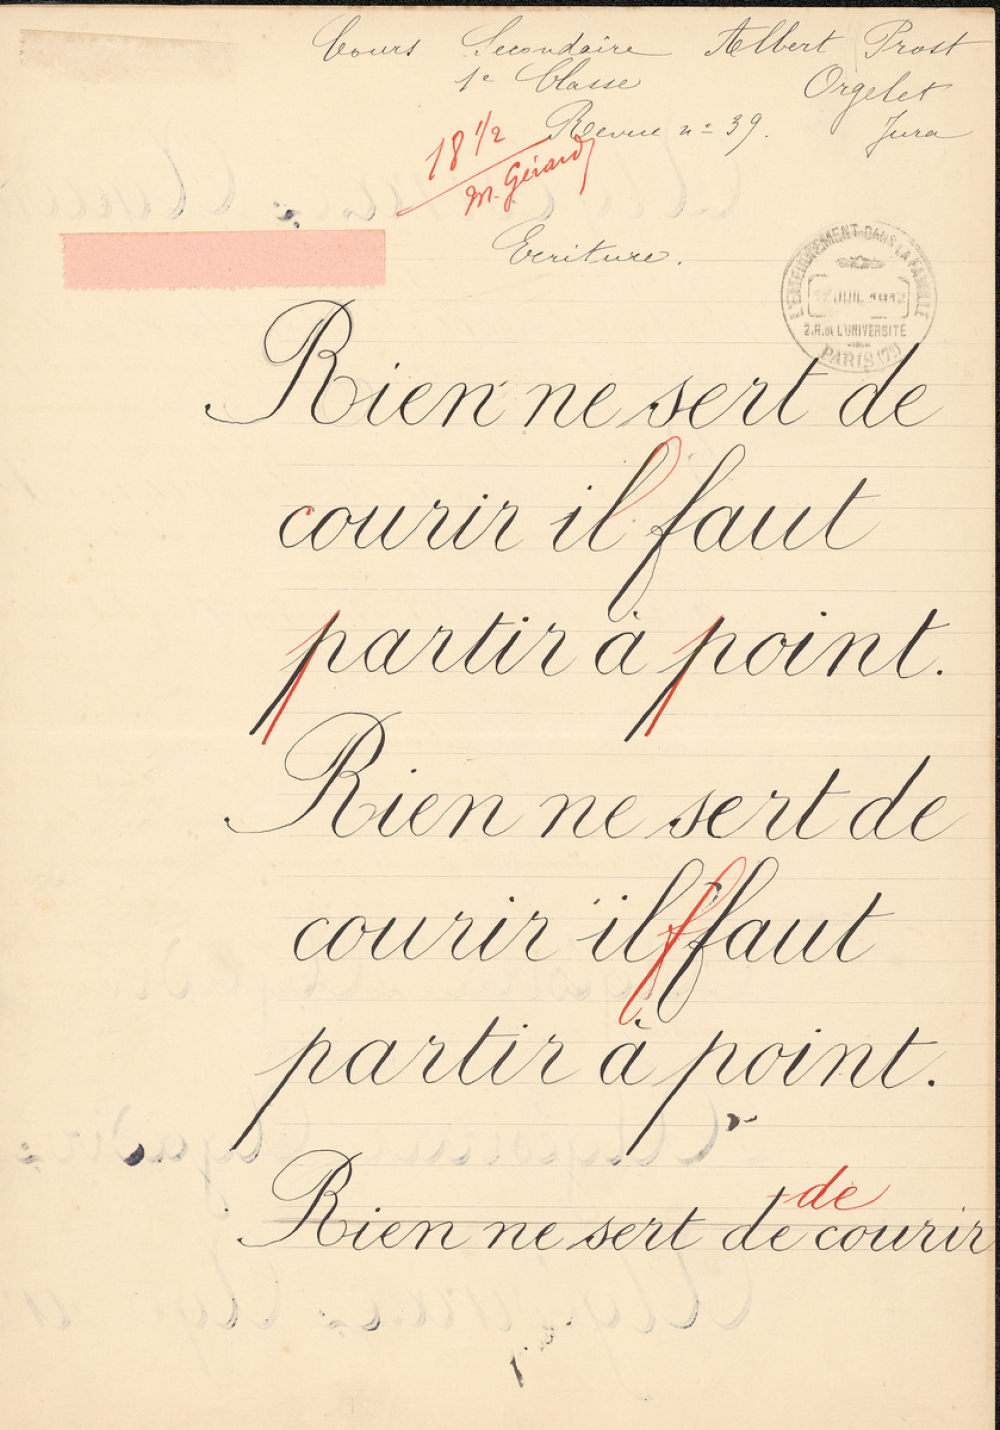 Cours Secondaire Albert Prost
1e Classe Orgelet
Revue n° 39. Jura
18 1/2
M. Gérard
Ecriture.
L'ENSEIGNEMENT DANS LA FAMILLE
17 JUIL 1912
2.R. de L'UNIVERSITÉ
PARIS (7e)
Rien ne sert de
courir il faut
partir à point.
Rien ne sert de
courir il faut
partir à point.
de
Rien ne sert de courir